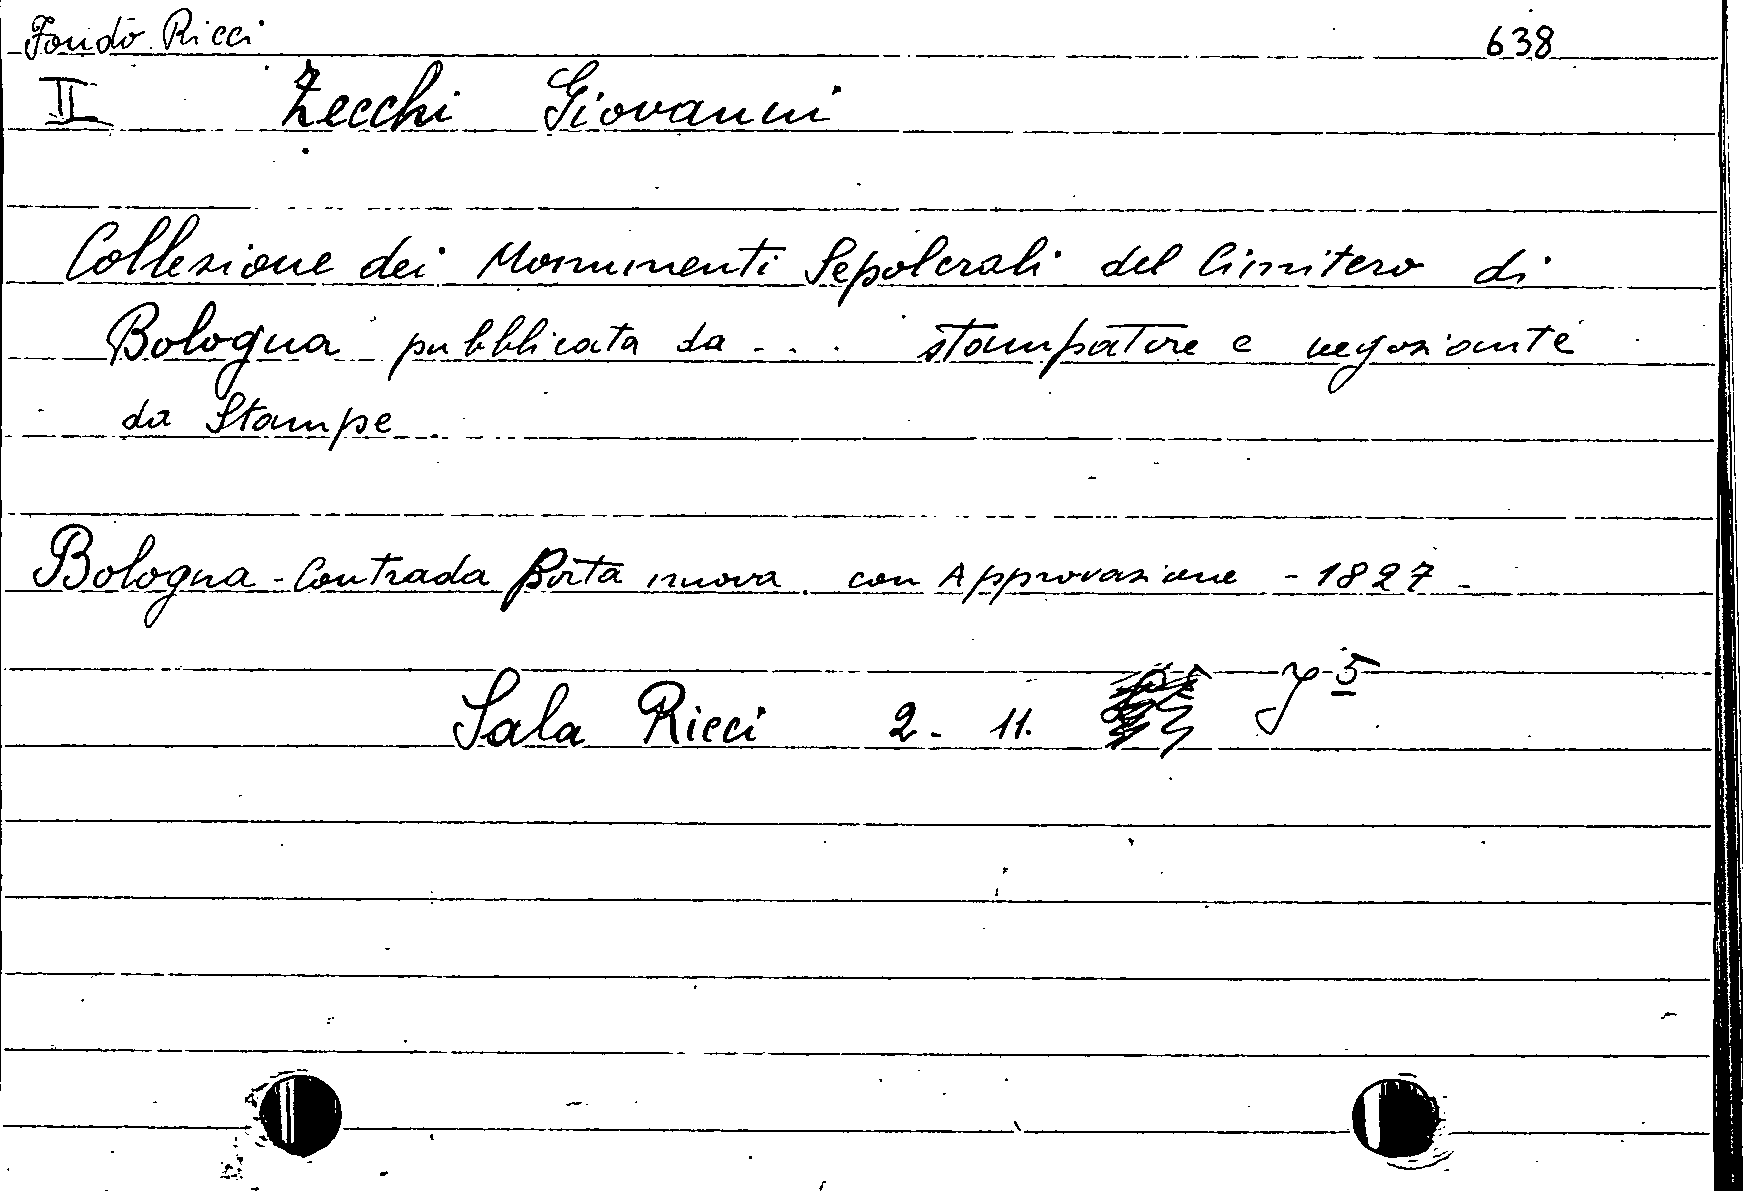 Fondo Ricci 638
II Zecchi Giovanni
Collezione dei Monumenti Sepolcrali del Cimitero di
Bologna pubblicata da ... stampatore e negoziante
da Stampe
Bologna - Contrada Porta nuova con Approvazione - 1827 -
Sala Ricci 2 - 11. 5